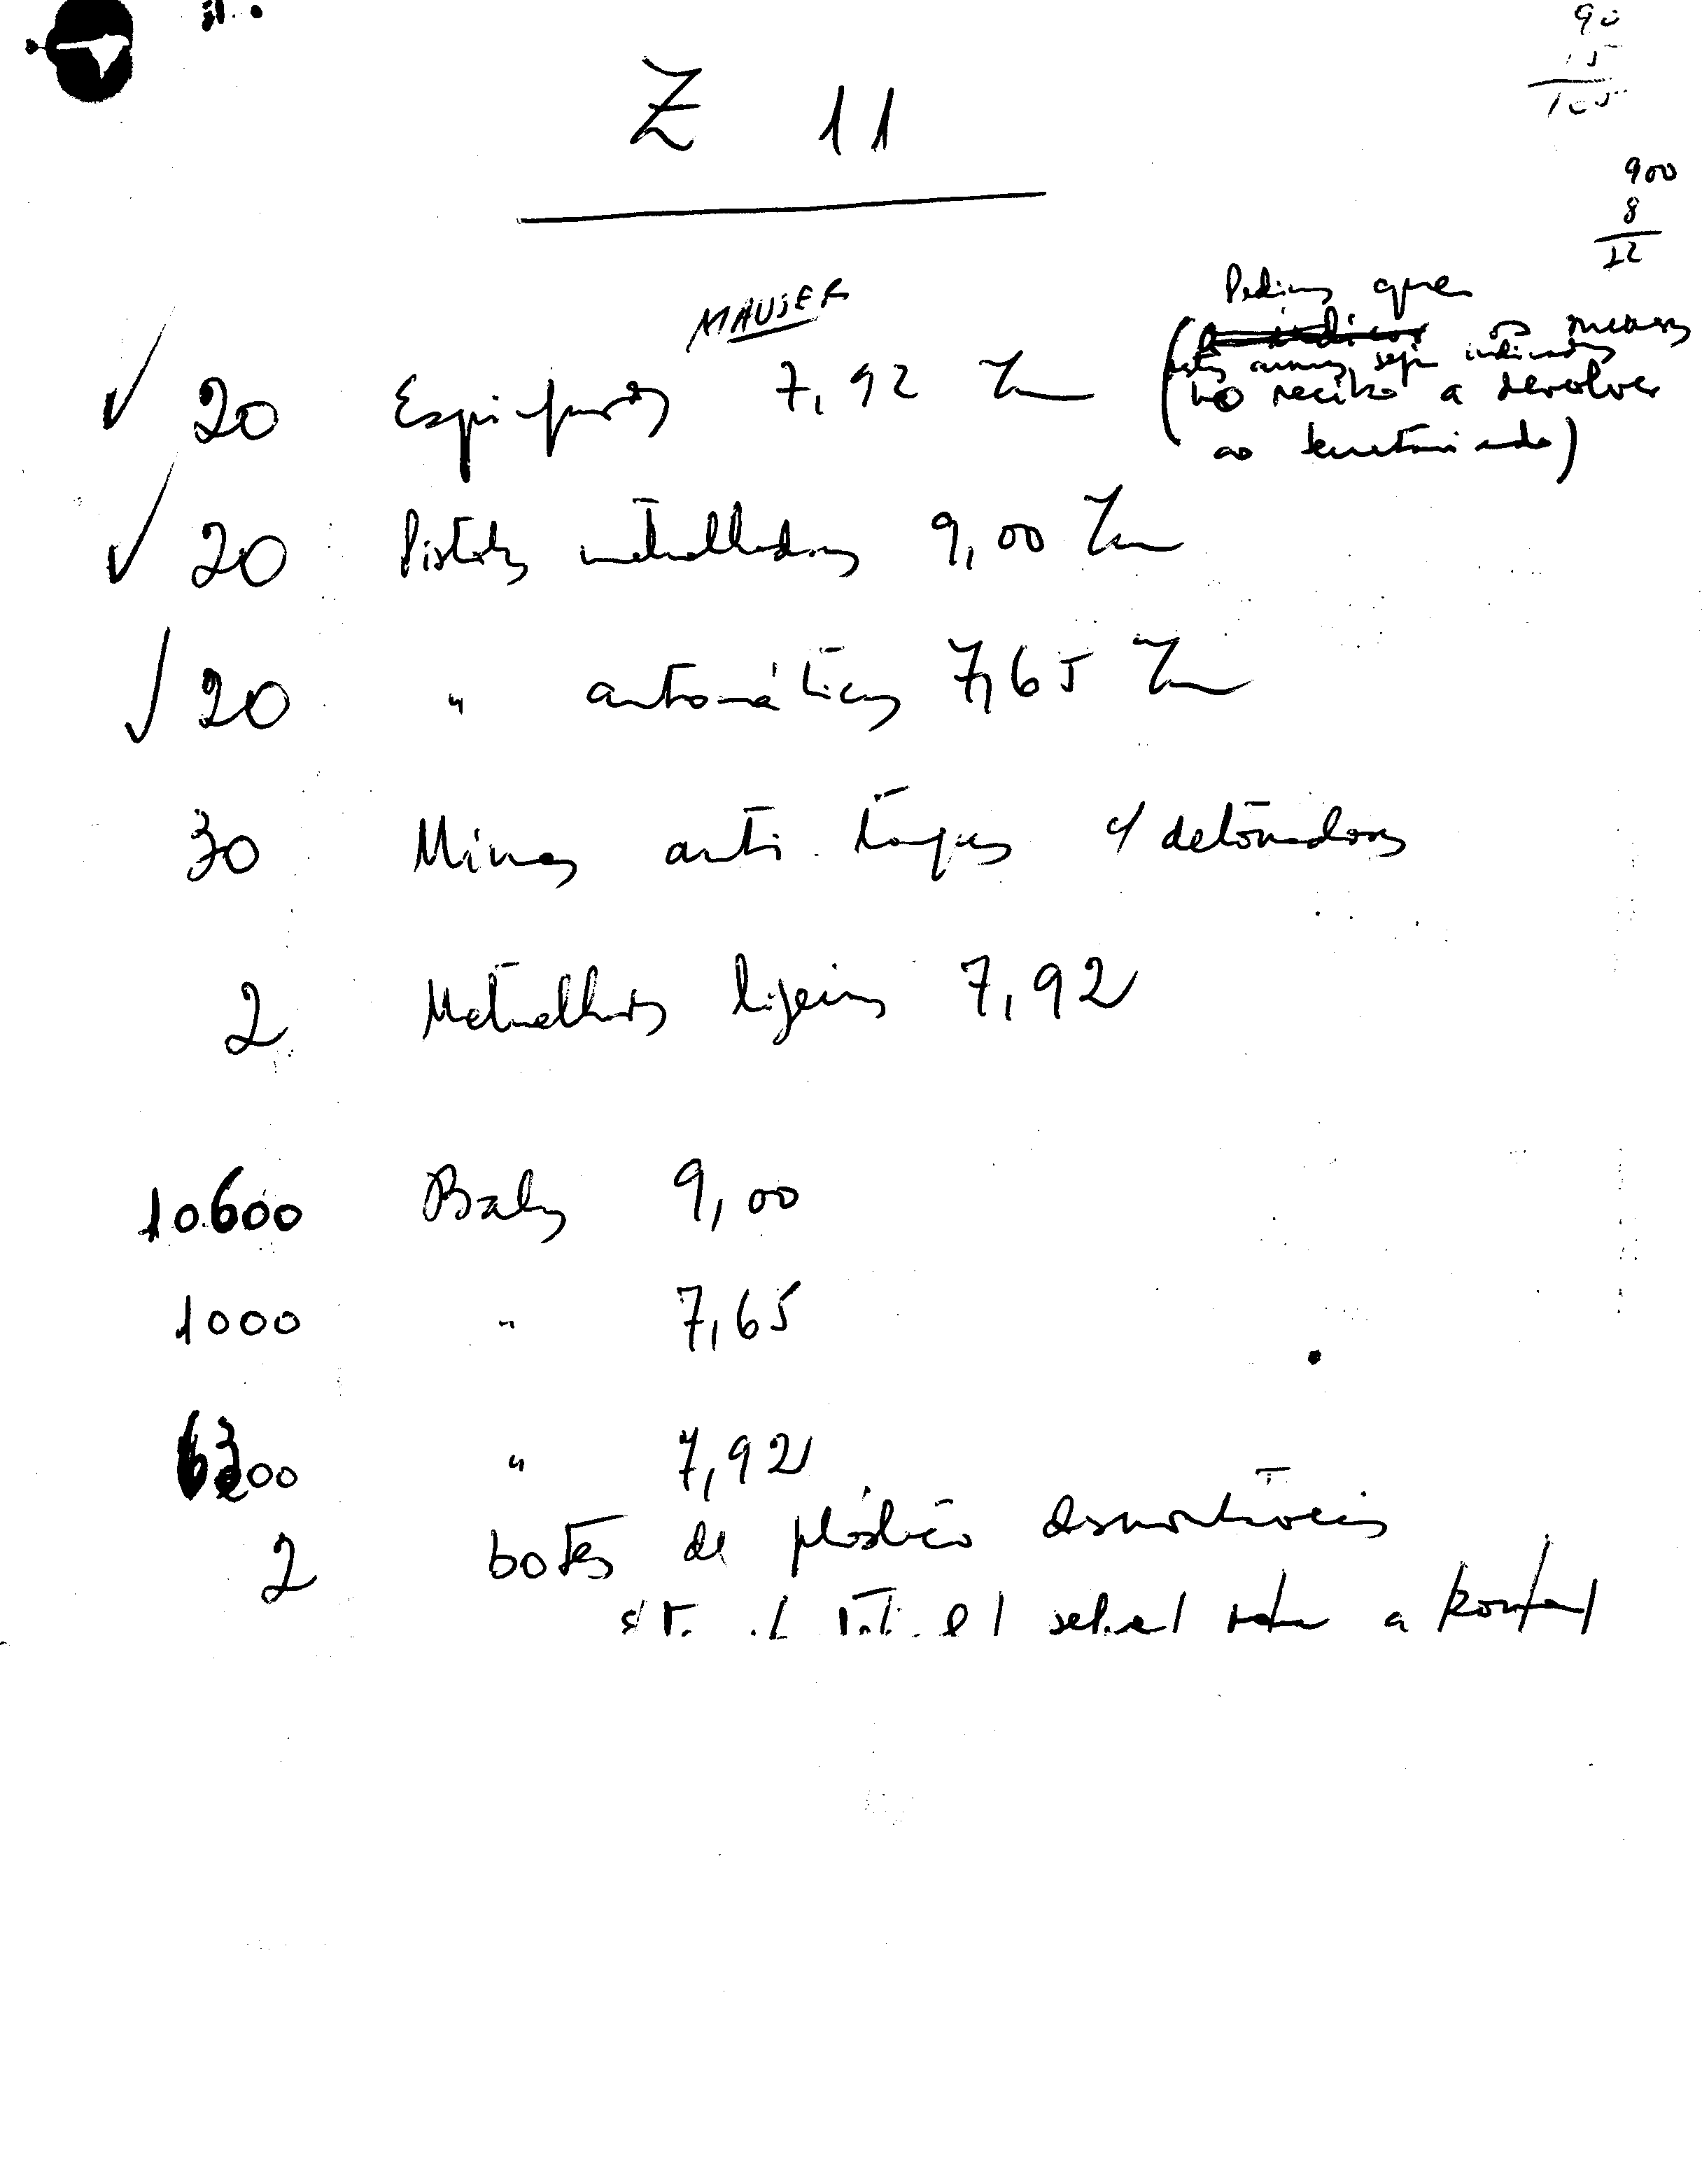 90
15
105
Z 11
900
8
12
MAUSER
Pedimos que
20 Espingardas 7,92 7m (os numeros
destas armas sejam indicados
no recibo a devolver
ao secretariado)
20 Pistolas metralhadoras 9,00 7m
20 " automáticas 7,65 7m
30 Minas anti-tanques c/ detonadores
2 Metralhadoras ligeiras 7,92
10600 Balas 9,00
1000 " 7,65
" 7,92
2 botes de plástico desmontáveis